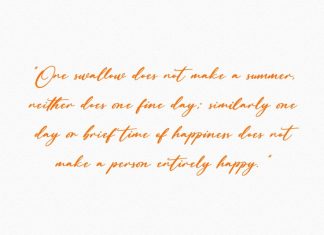 "One swallow does not make a summer,
neither does one fine day; similarly one
day or brief time of happiness does not
make a person entirely happy."